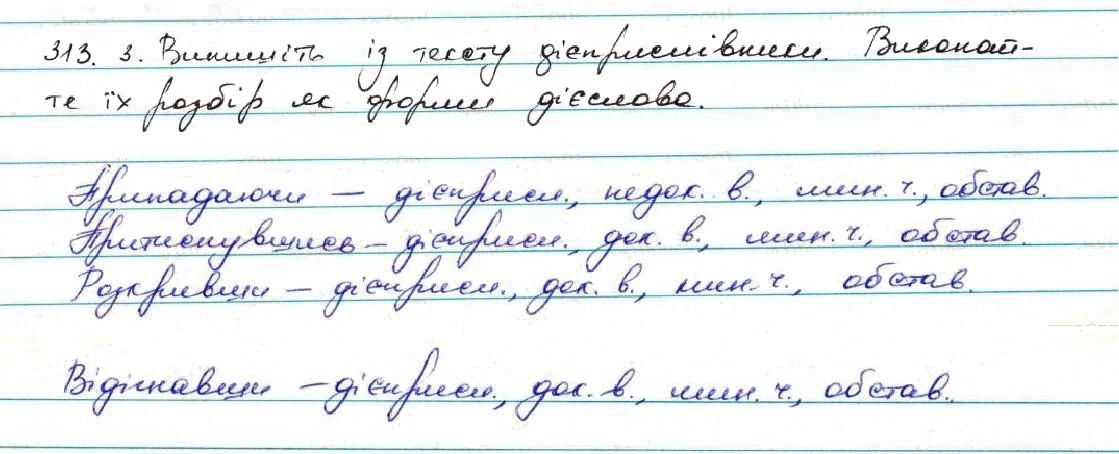 313. 3. Випишіть із тексту дієприслівники. Виконай-
те їх розбір як форми дієслова.
Припадаючи – дієприсл., недок. в., мин. ч., обстав.
Притиснувшись – дієприсл., док. в., мин. ч., обстав.
Розкривши – дієприсл., док. в., мин. ч., обстав.
Відіпхавши – дієприсл., док. в., мин. ч., обстав.